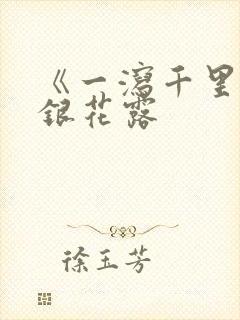 《一泻千里
银花露
徐玉芳